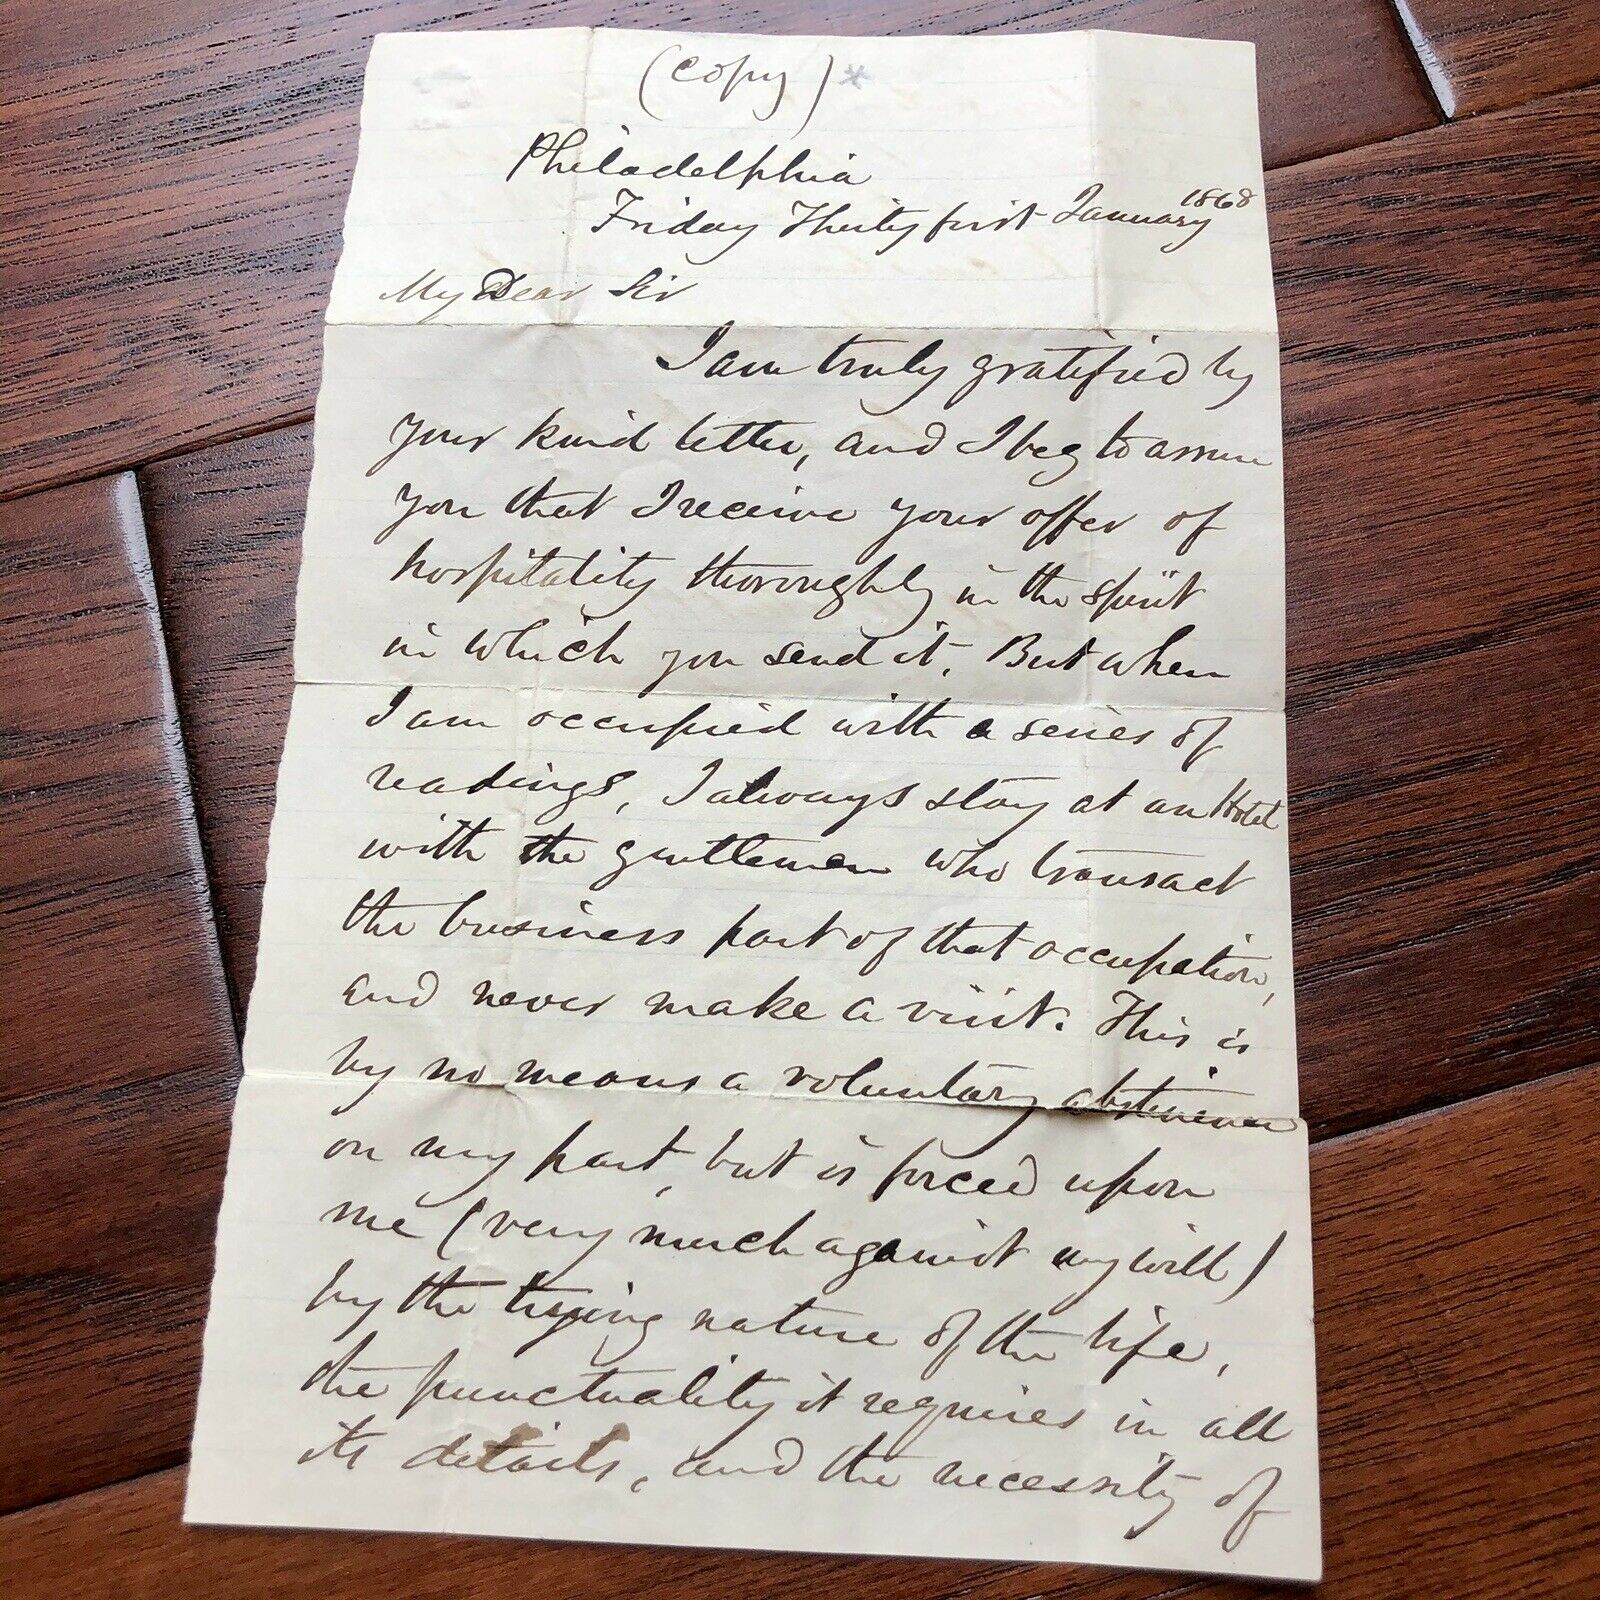 (Copy) *
Philadelphia
Friday Thirty first January 1868
My Dear Sir
I am truly gratified by
your kind letter, and I beg to assure
you that I receive your offer of
hospitality thoroughly in the spirit
in which you send it. But when
I am occupied with a series of
readings, I always stay at an Hotel
with the gentlemen who transact
the business part of that occupation,
and never make a visit. This is
by no means a voluntary abstinence
on my part, but is forced upon
me (very much against my will)
by the trying nature of the life,
the punctuality it requires in all
its details, and the necessity of